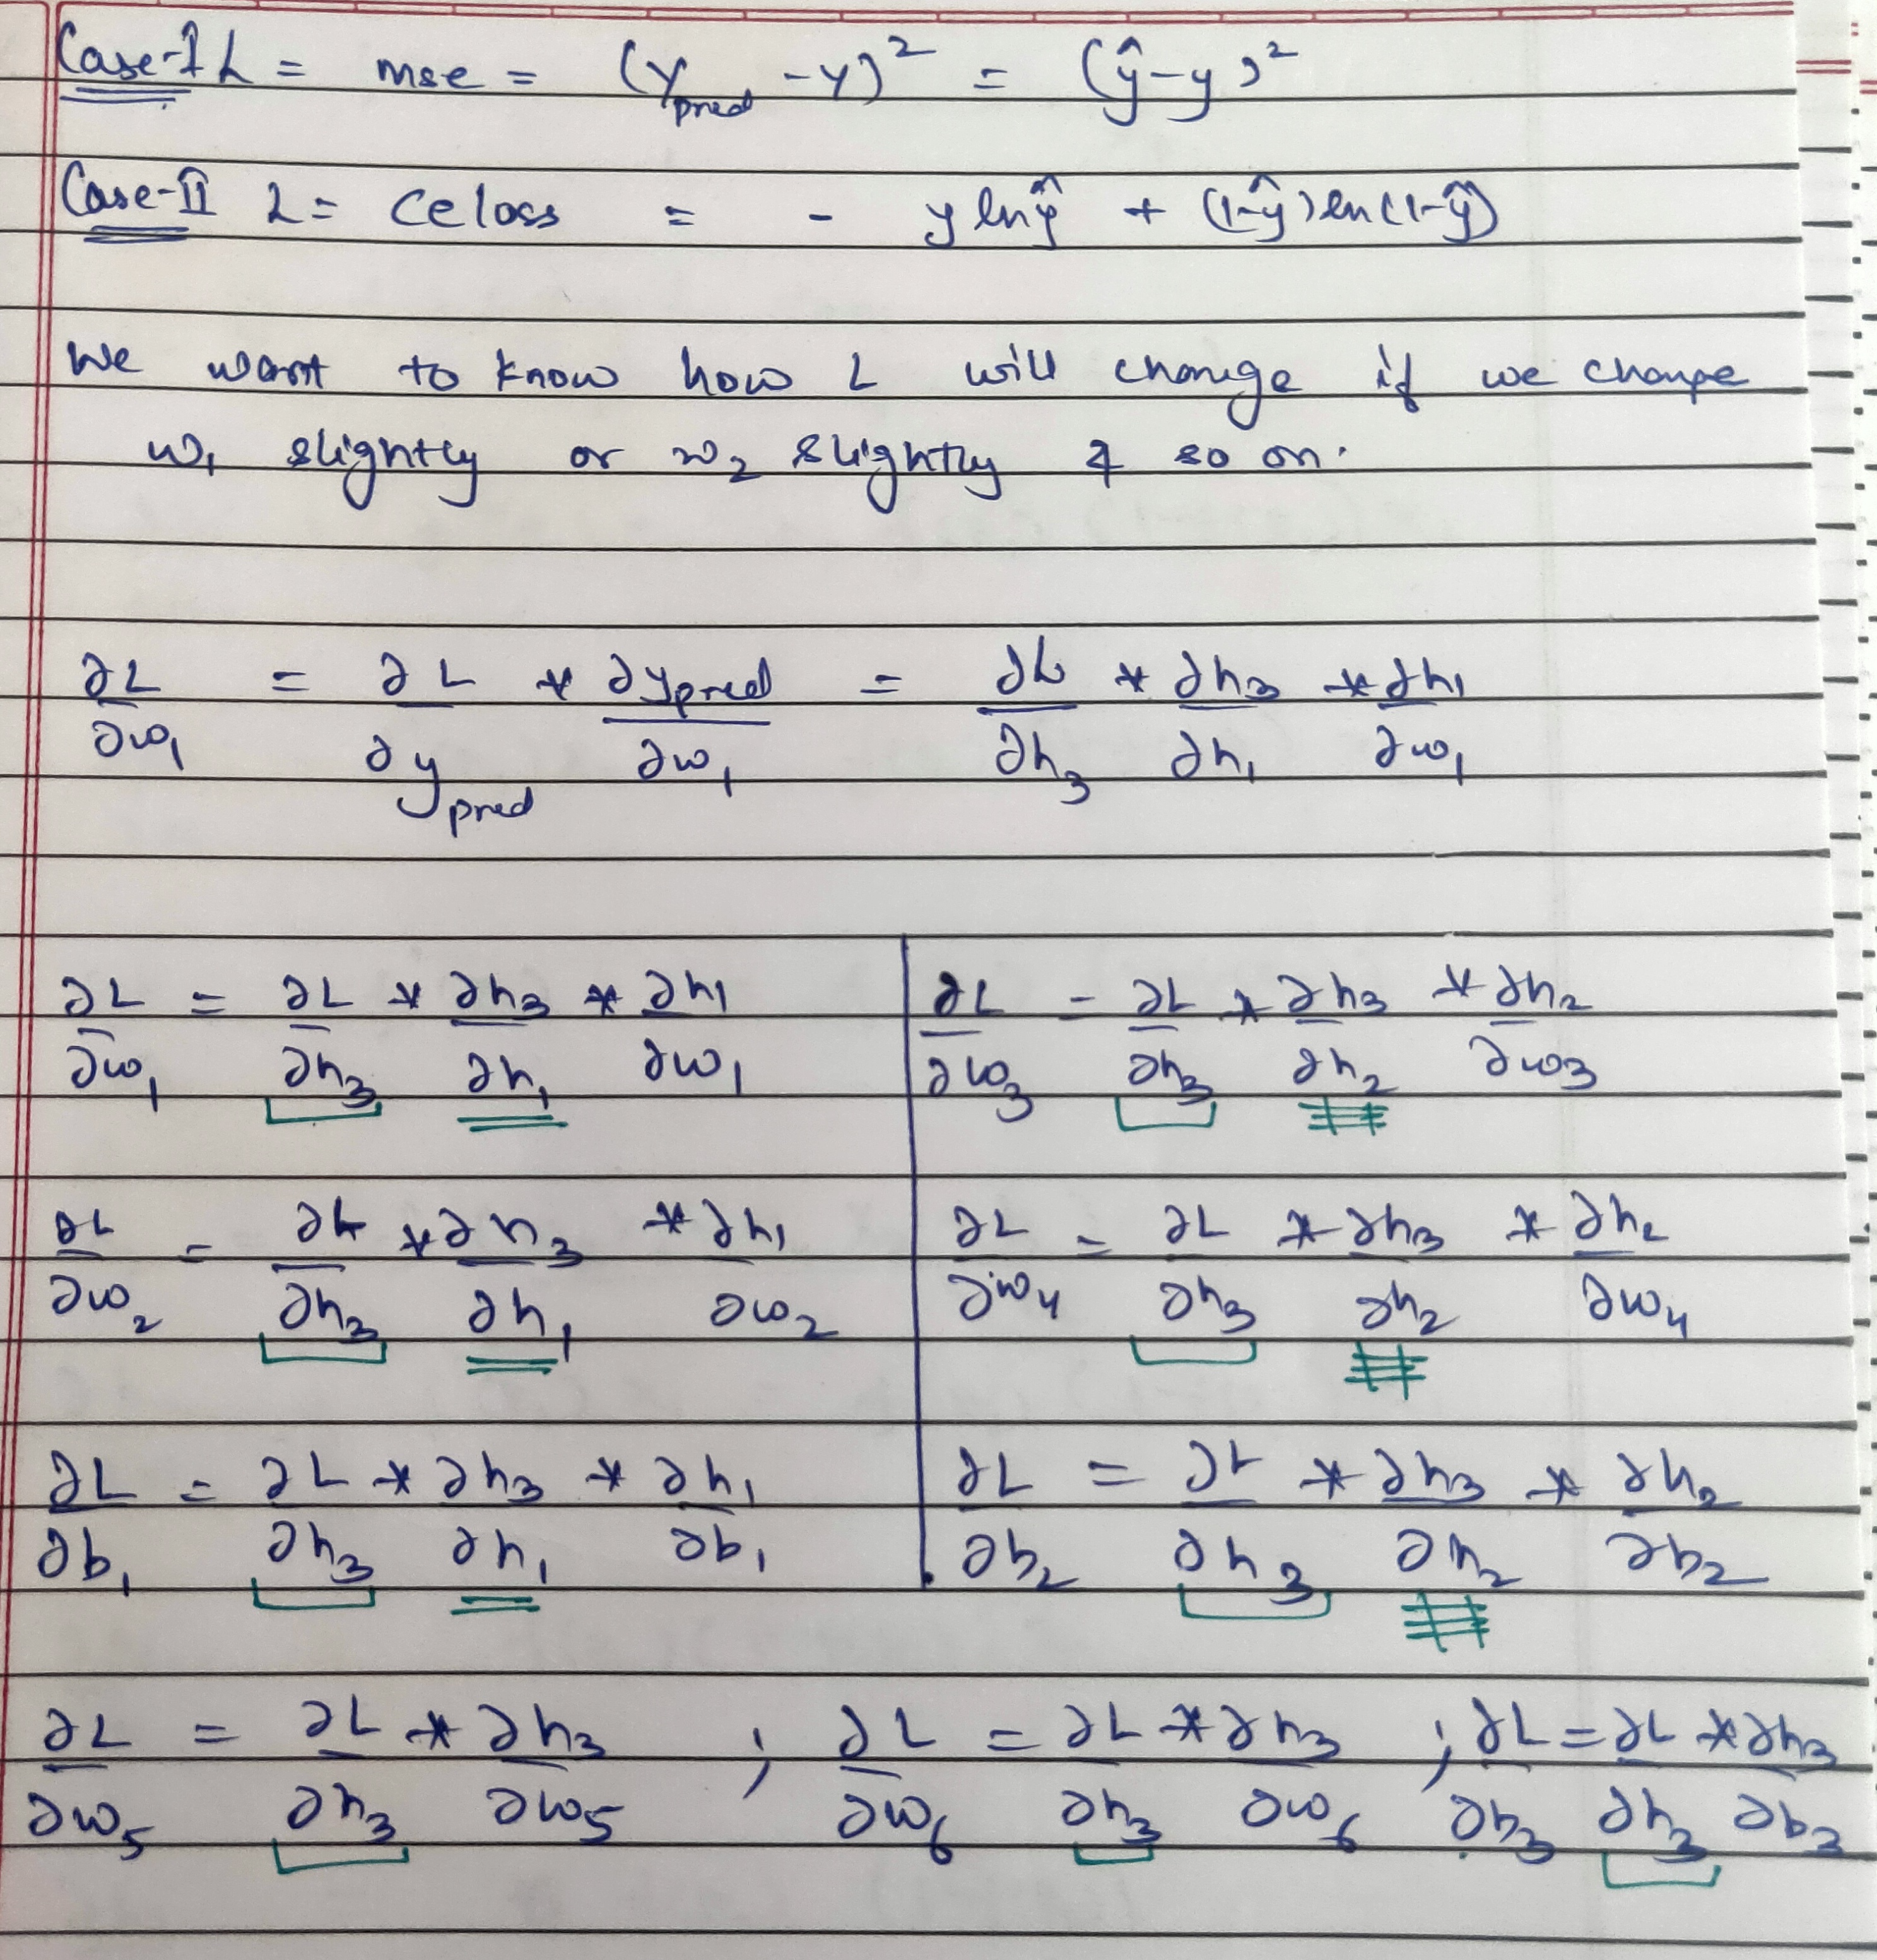 Case-I L = mse = (y_pred - y)² = (ŷ - y)²
Case-II L = celoss = - y ln ŷ + (1-ŷ) ln(1-ŷ)
We want to know how L will change if we change
w₁ slightly or w₂ slightly & so on.
∂L/∂w₁ = ∂L/∂y_pred * ∂y_pred/∂w₁ = ∂L/∂h₃ * ∂h₃/∂h₁ * ∂h₁/∂w₁
∂L/∂w₁ = ∂L/∂h₃ * ∂h₃/∂h₁ * ∂h₁/∂w₁
∂L/∂w₃ = ∂L/∂h₃ * ∂h₃/∂h₂ * ∂h₂/∂w₃
∂L/∂w₂ = ∂L/∂h₃ * ∂h₃/∂h₁ * ∂h₁/∂w₂
∂L/∂w₄ = ∂L/∂h₃ * ∂h₃/∂h₂ * ∂h₂/∂w₄
∂L/∂b₁ = ∂L/∂h₃ * ∂h₃/∂h₁ * ∂h₁/∂b₁
∂L/∂b₂ = ∂L/∂h₃ * ∂h₃/∂h₂ * ∂h₂/∂b₂
∂L/∂w₅ = ∂L/∂h₃ * ∂h₃/∂w₅ ; ∂L/∂w₆ = ∂L/∂h₃ * ∂h₃/∂w₆ ; ∂L/∂b₃ = ∂L/∂h₃ * ∂h₃/∂b₃